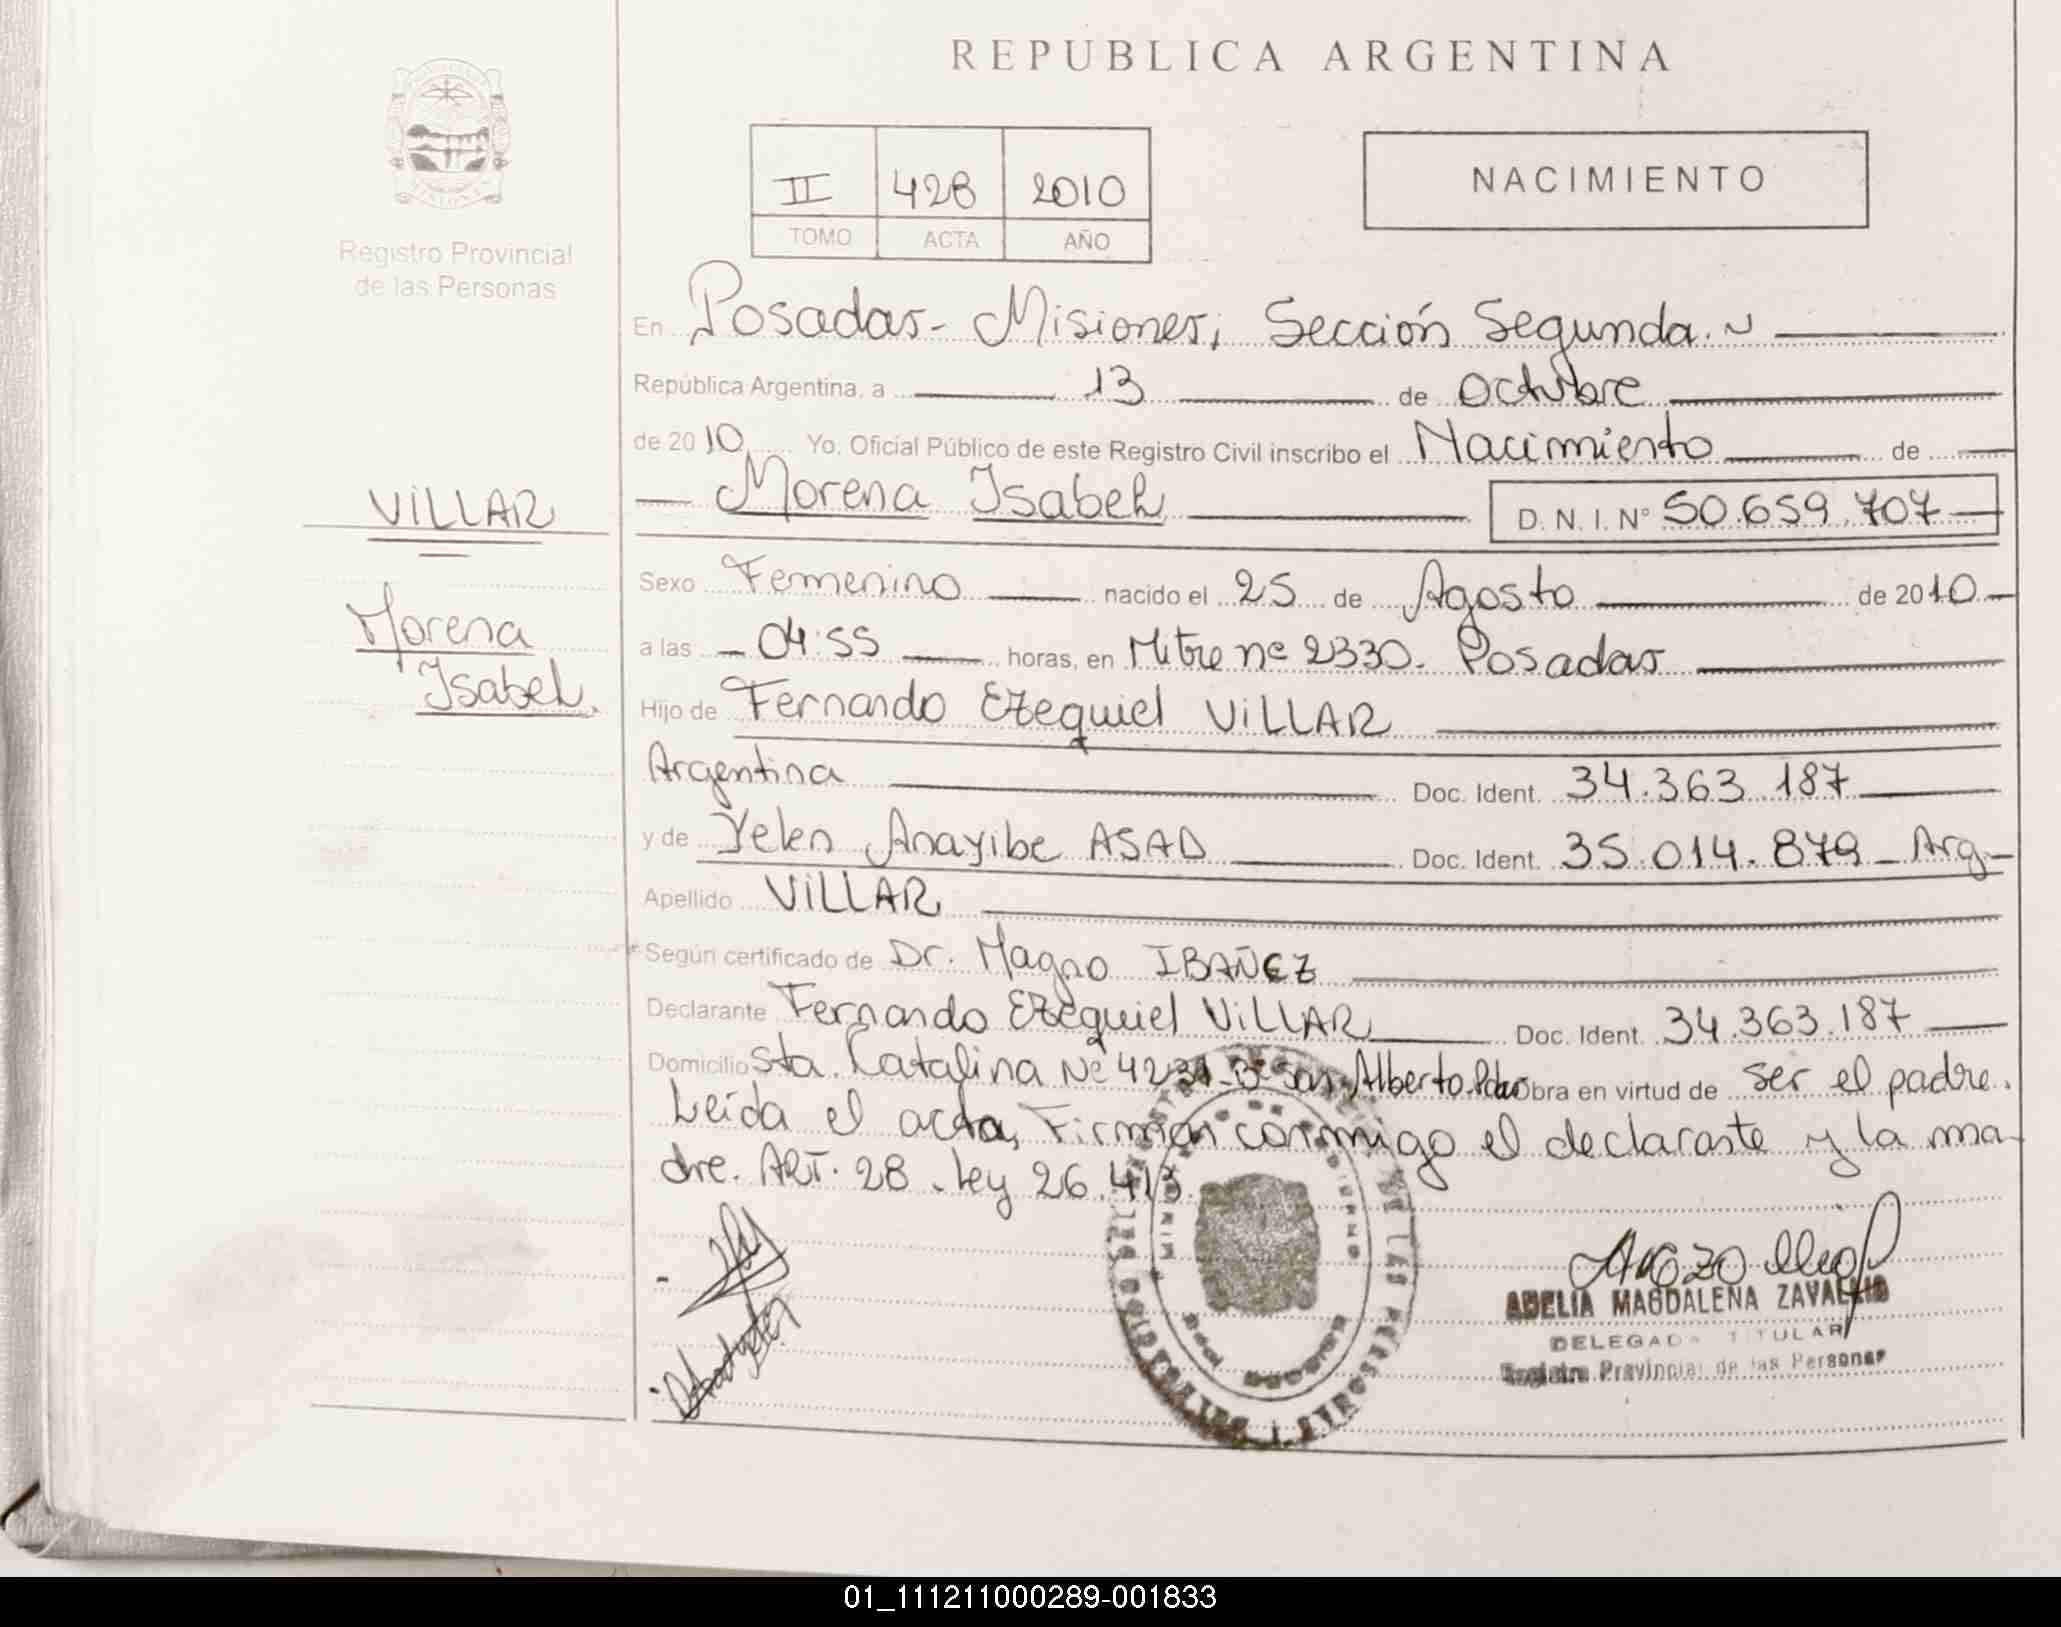 REPUBLICA ARGENTINA
Registro Provincial
de las Personas
II 428 2010
TOMO ACTA AÑO
NACIMIENTO
En Posadas - Misiones, Sección Segunda.
República Argentina, a 13 de Octubre
de 2010 Yo. Oficial Público de este Registro Civil inscribo el Nacimiento de
Morena Isabel D. N. I. Nº 50.659.707
VILLAR
Morena
Isabel.
Sexo Femenino nacido el 25 de Agosto de 2010
a las 04:55 horas, en Mitre nº 2330. Posadas
Hijo de Fernando Ezequiel VILLAR
Argentina Doc. Ident. 34.363.187
y de Yelen Anayibe ASAD Doc. Ident. 35.014.879 - Arg.
Apellido VILLAR
Según certificado de Dr. Magno IBAÑEZ
Declarante Fernando Ezequiel VILLAR Doc. Ident. 34.363.187
Domicilio Sta. Catalina Nº 4231 - Bº San Alberto. Pdas Obra en virtud de ser el padre.
Leída el acta, Firman conmigo el declarante y la ma-
dre. ART. 28 - Ley 26.413.
ADELIA MAGDALENA ZAVALLIO
DELEGADA TITULAR
Registro Provincial de las Personas
01_111211000289-001833